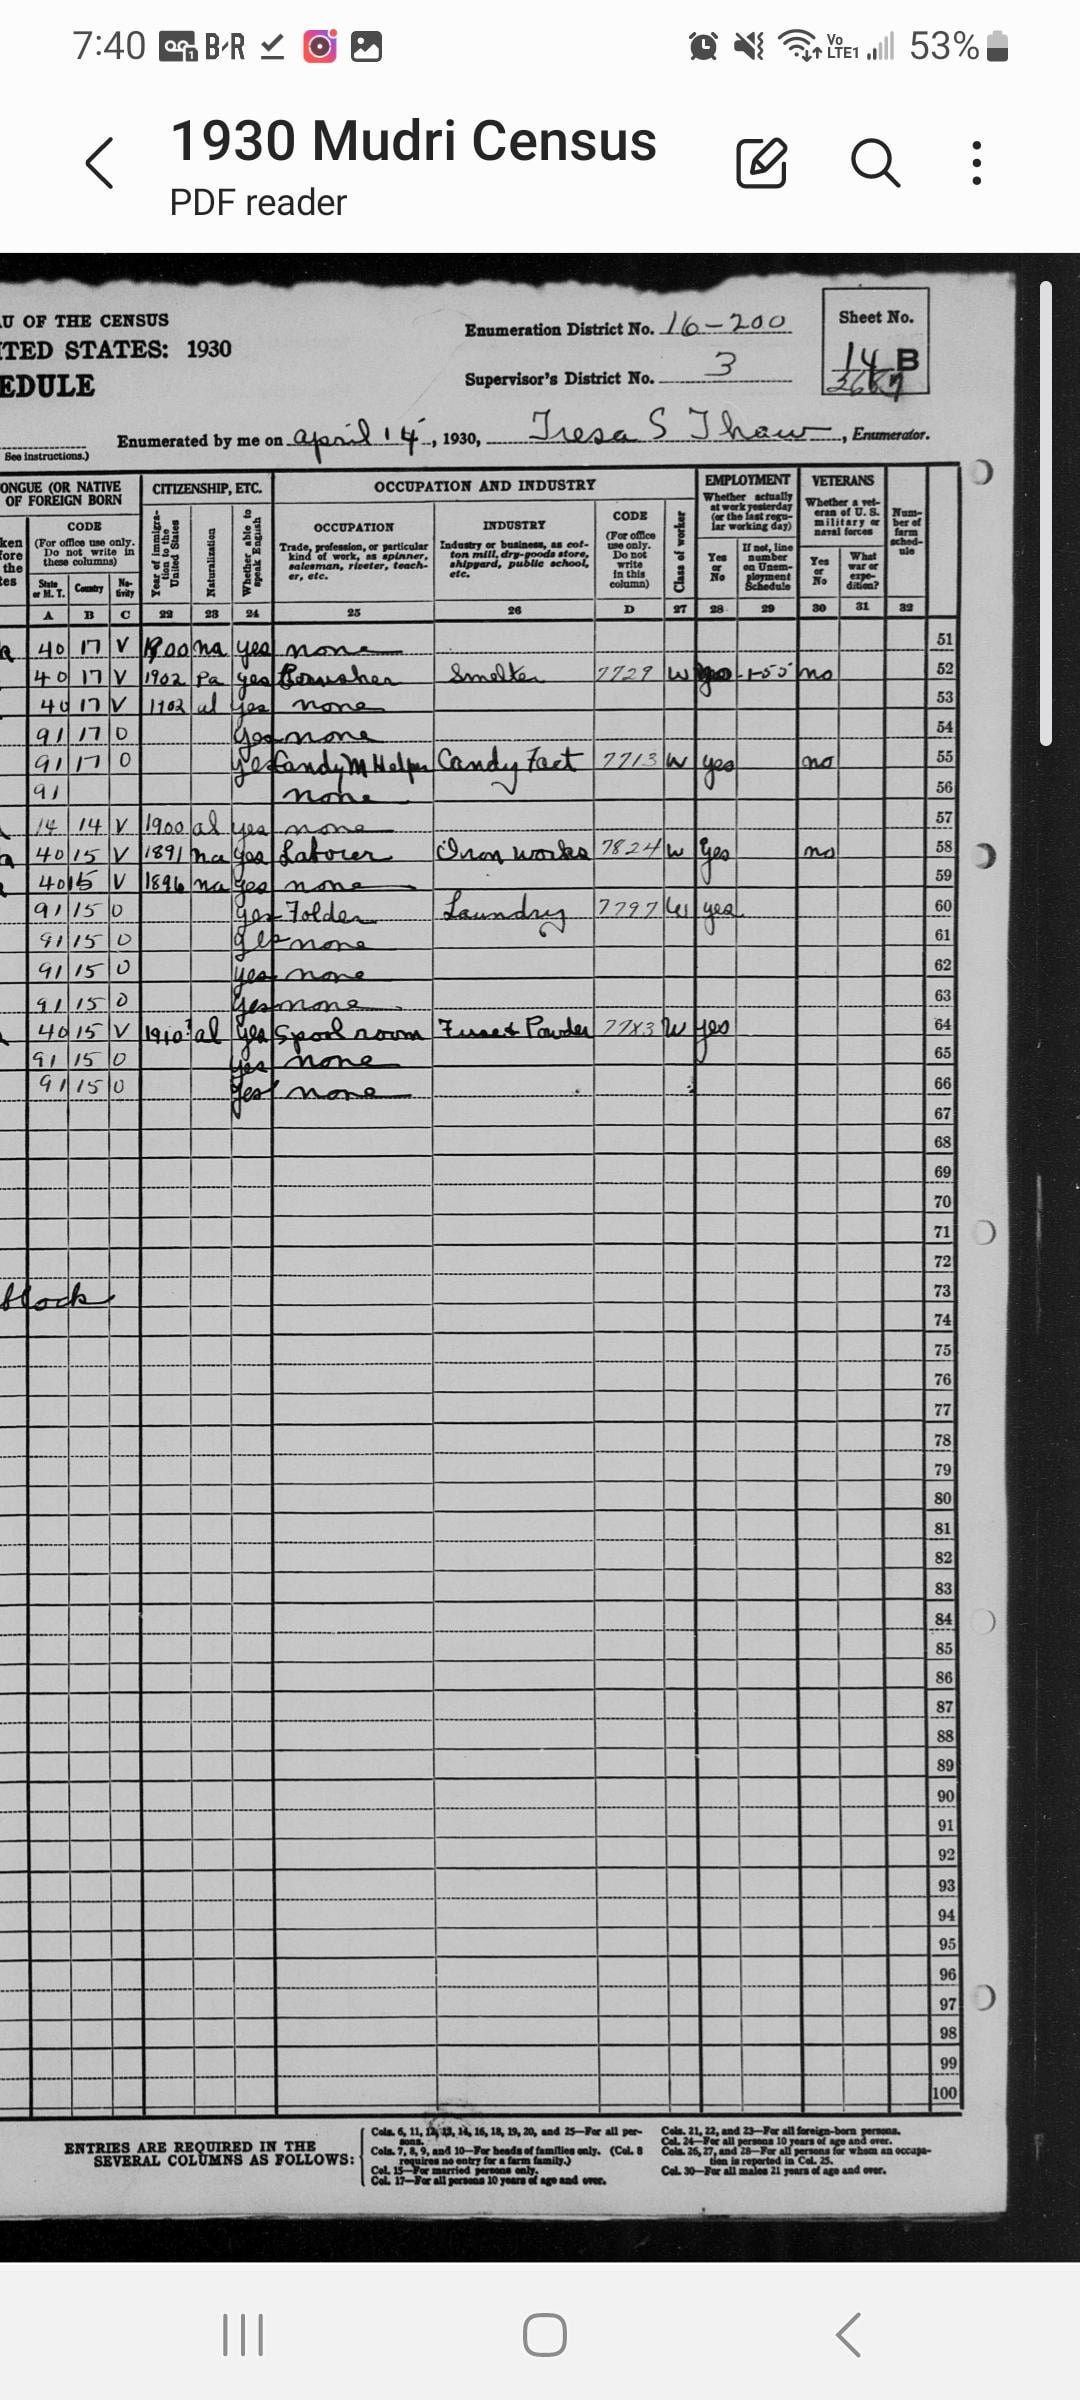 7:40 B-R Vo LTE1 53%
1930 Mudri Census
PDF reader
AU OF THE CENSUS
ITED STATES: 1930
EDULE
Enumeration District No. 16-200
Supervisor's District No. 3
Sheet No.
14 B
See instructions.)
Enumerated by me on april 14, 1930, Tresa S Thaw, Enumerator.
ONGUE (OR NATIVE OF FOREIGN BORN
CITIZENSHIP, ETC.
OCCUPATION AND INDUSTRY
EMPLOYMENT
Whether actually at work yesterday (or the last regular working day)
VETERANS
Whether a veteran of U. S. military or naval forces
Number of farm schedule
CODE
(For office use only. Do not write in these columns)
State or M. T.
Country
Nativity
Year of immigration to the United States
Naturalization
Whether able to speak English
OCCUPATION
Trade, profession, or particular kind of work, as spinner, salesman, riveter, teacher, etc.
INDUSTRY
Industry or business, as cotton mill, dry-goods store, shipyard, public school, etc.
CODE
(For office use only. Do not write in this column)
Class of worker
Yes or No
If not, line number on Unemployment Schedule
Yes or No
What war or expedition?
A B C 22 23 24 25 26 D 27 28 29 30 31 32
40 17 V 1900 na yes none 51
40 17 V 1902 Pa yes Smelter 7729 W 1-55 no 52
40 17 V 1902 al yes none 53
91 17 0 yes none 54
91 17 0 yes Candy M Helper Candy Fact 7713 W yes no 55
91 none 56
14 14 V 1900 al yes none 57
40 15 V 1891 na yes Laborer Iron works 7824 W yes no 58
40 15 V 1896 na yes none 59
91 15 0 yes Folder Laundry 7797 W yes 60
91 15 0 yes none 61
91 15 0 yes none 62
91 15 0 yes none 63
40 15 V 1910? al yes Spool room Fuse & Powder 77X3 W yes 64
91 15 0 yes none 65
91 15 0 yes none 66
67
68
69
70
71
72
block 73
74
75
76
77
78
79
80
81
82
83
84
85
86
87
88
89
90
91
92
93
94
95
96
97
98
99
100
ENTRIES ARE REQUIRED IN THE SEVERAL COLUMNS AS FOLLOWS:
Cols. 6, 11, 12, 13, 14, 16, 18, 19, 20, and 25—For all persons.
Cols. 7, 8, 9, and 10—For heads of families only. (Col. 8 requires no entry for a farm family.)
Col. 15—For married persons only.
Col. 17—For all persons 10 years of age and over.
Cols. 21, 22, and 23—For all foreign-born persons.
Col. 24—For all persons 10 years of age and over.
Cols. 26, 27, and 28—For all persons for whom an occupation is reported in Col. 25.
Col. 30—For all males 21 years of age and over.